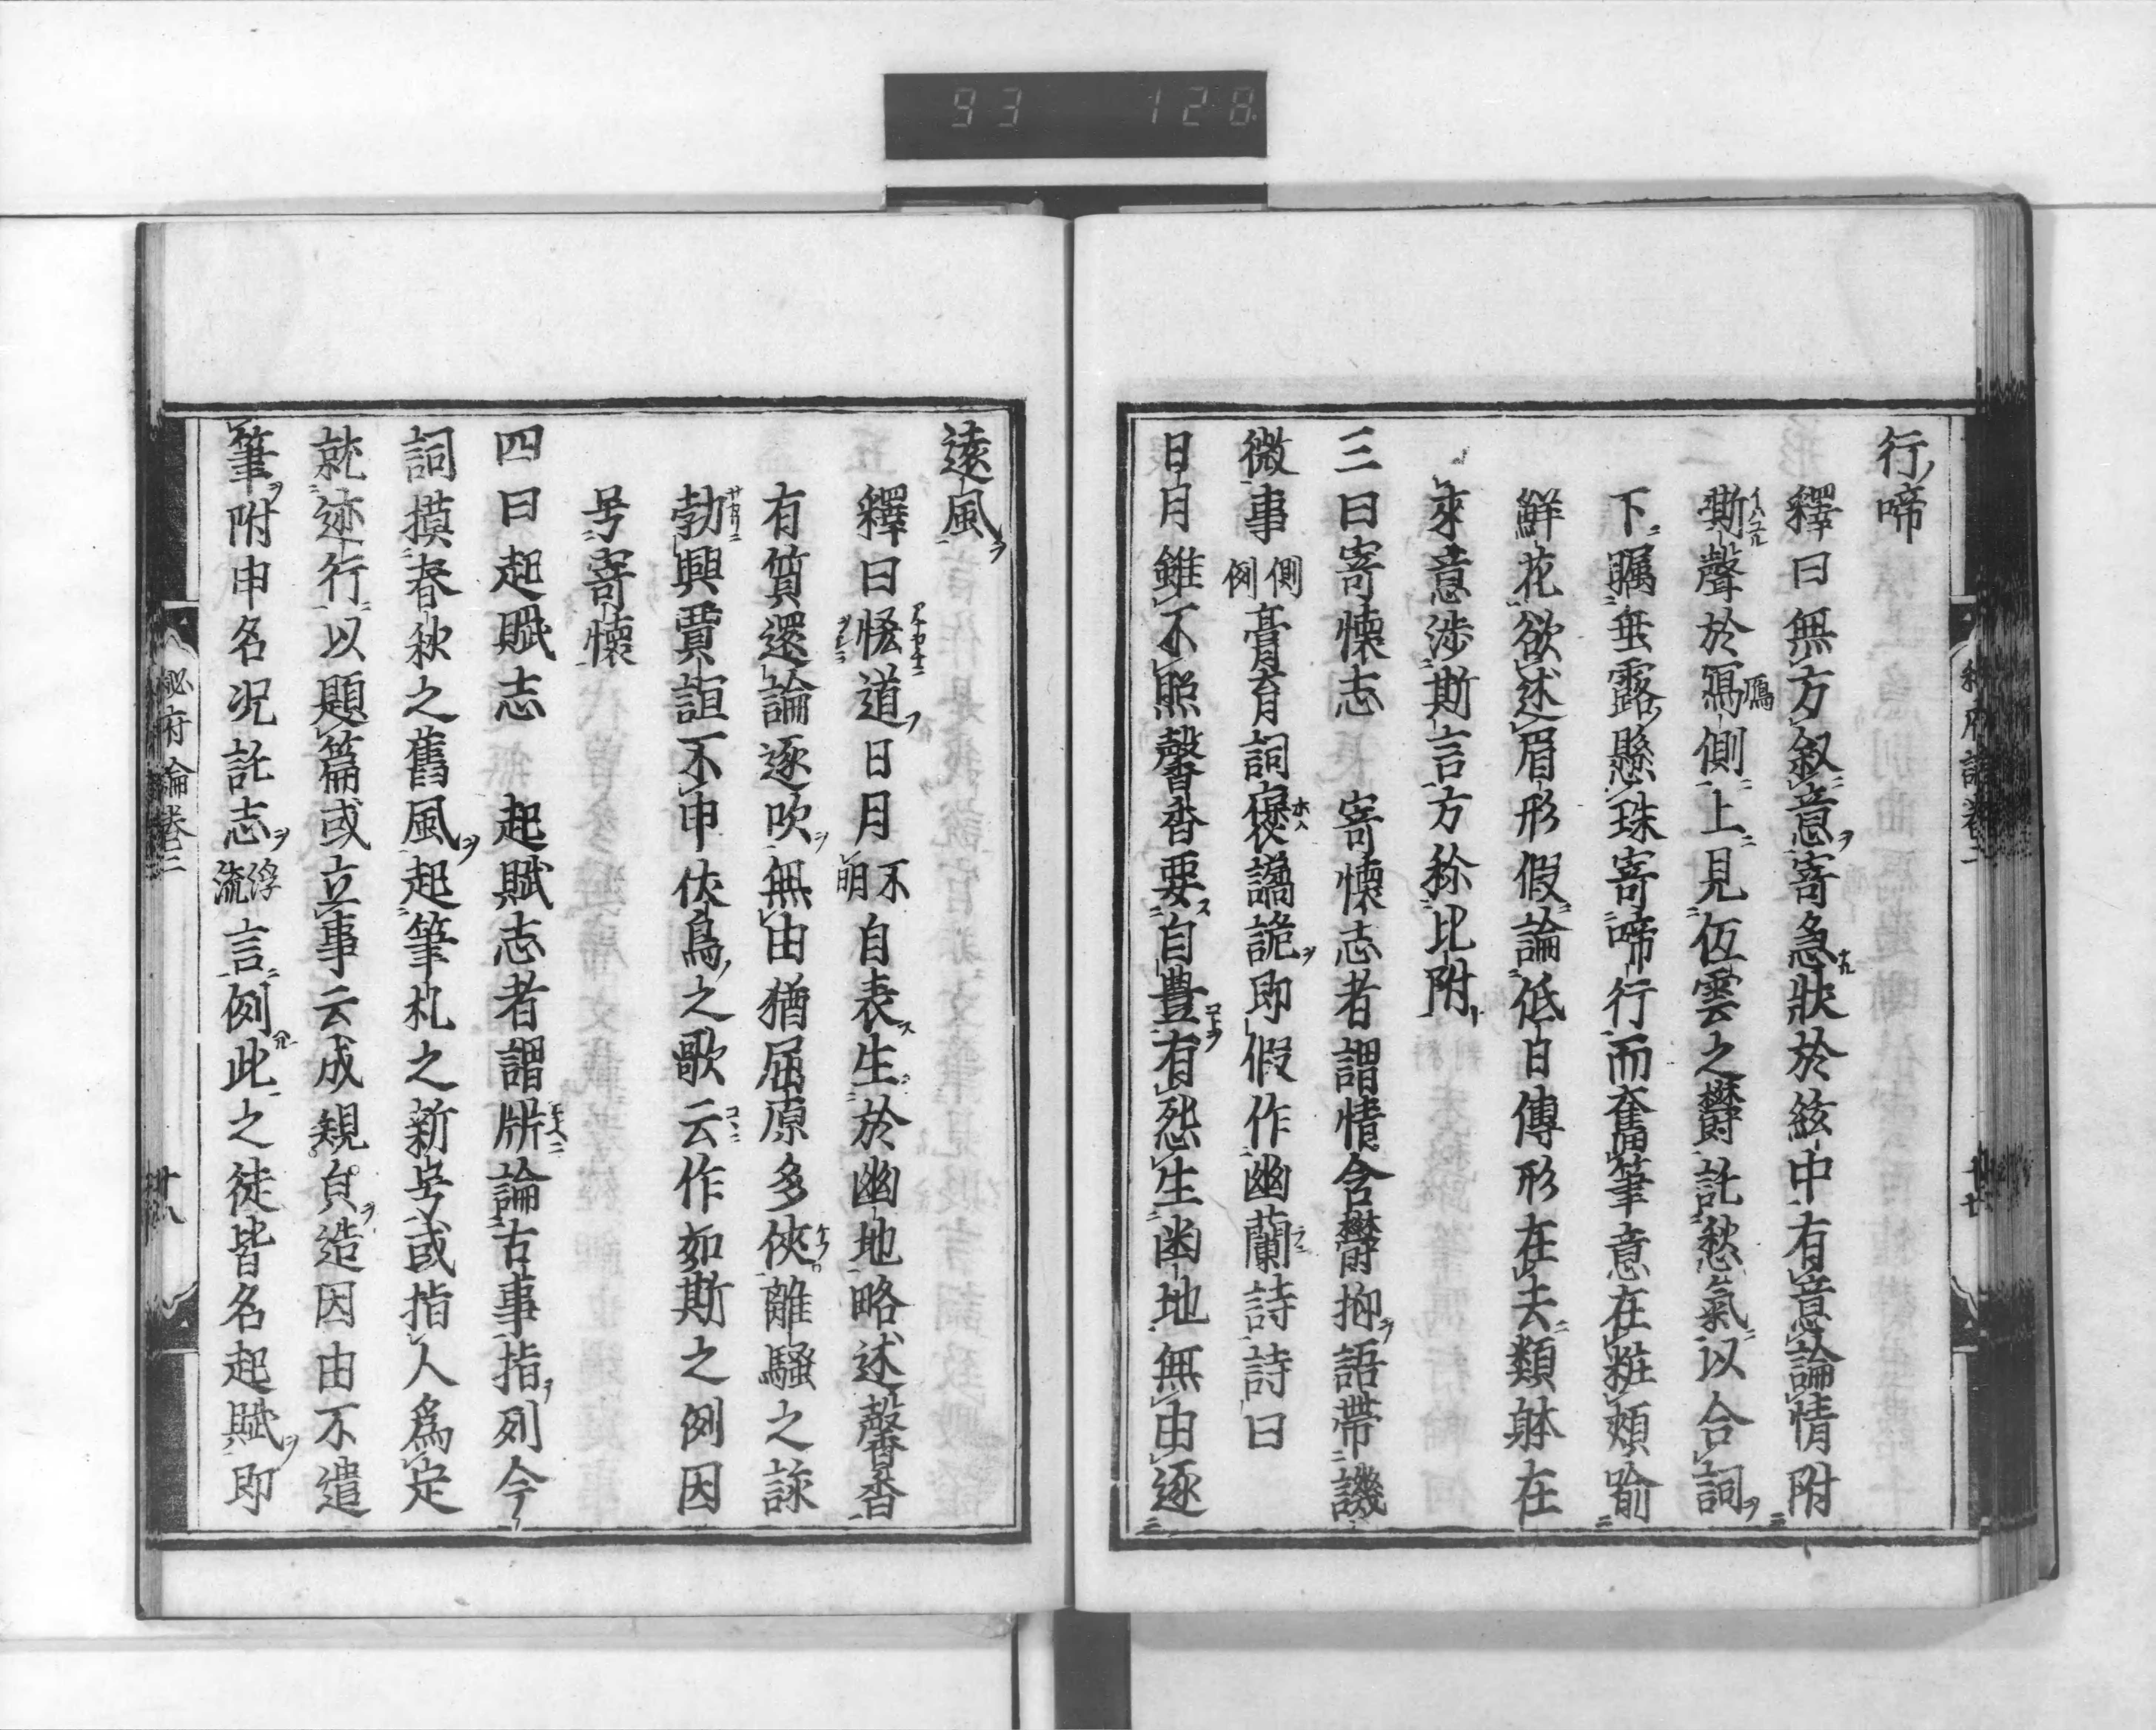 93 128
行啼
釋曰無方叙意寄急狀於絃中有意論情附
嘶聲於鴈側上見低雲之欝託愁氣以合詞
下矚垂露懸珠寄啼行而奮筆意在粧頰喻
鮮花欲述眉形假論低日傳形在去類躰在
來意涉斯言方称比附
三曰寄懷志 寄懷志者謂情含欝抑語帶譏
微事側例膏肓詞褒譎詭即假作幽蘭詩詩曰
日月雖不照馨香要自豊有怨生幽地無由逐
遠風
釋曰怪道日月不明自表生於幽地略述馨香
有質還論逐吹無由猶屈原多俠離騷之詠
勃興賈誼不申伏鳥之歌云作如斯之例因
号寄懷
四曰起賦志 起賦志者謂斨論古事指列今
詞摸春秋之舊風起筆札之新号或指人爲定
就迹行以題篇或立事云成規㒵造因由不遣
筆附申名况託志浮流言例此之徒皆名起賦即
秘府論卷三
十八